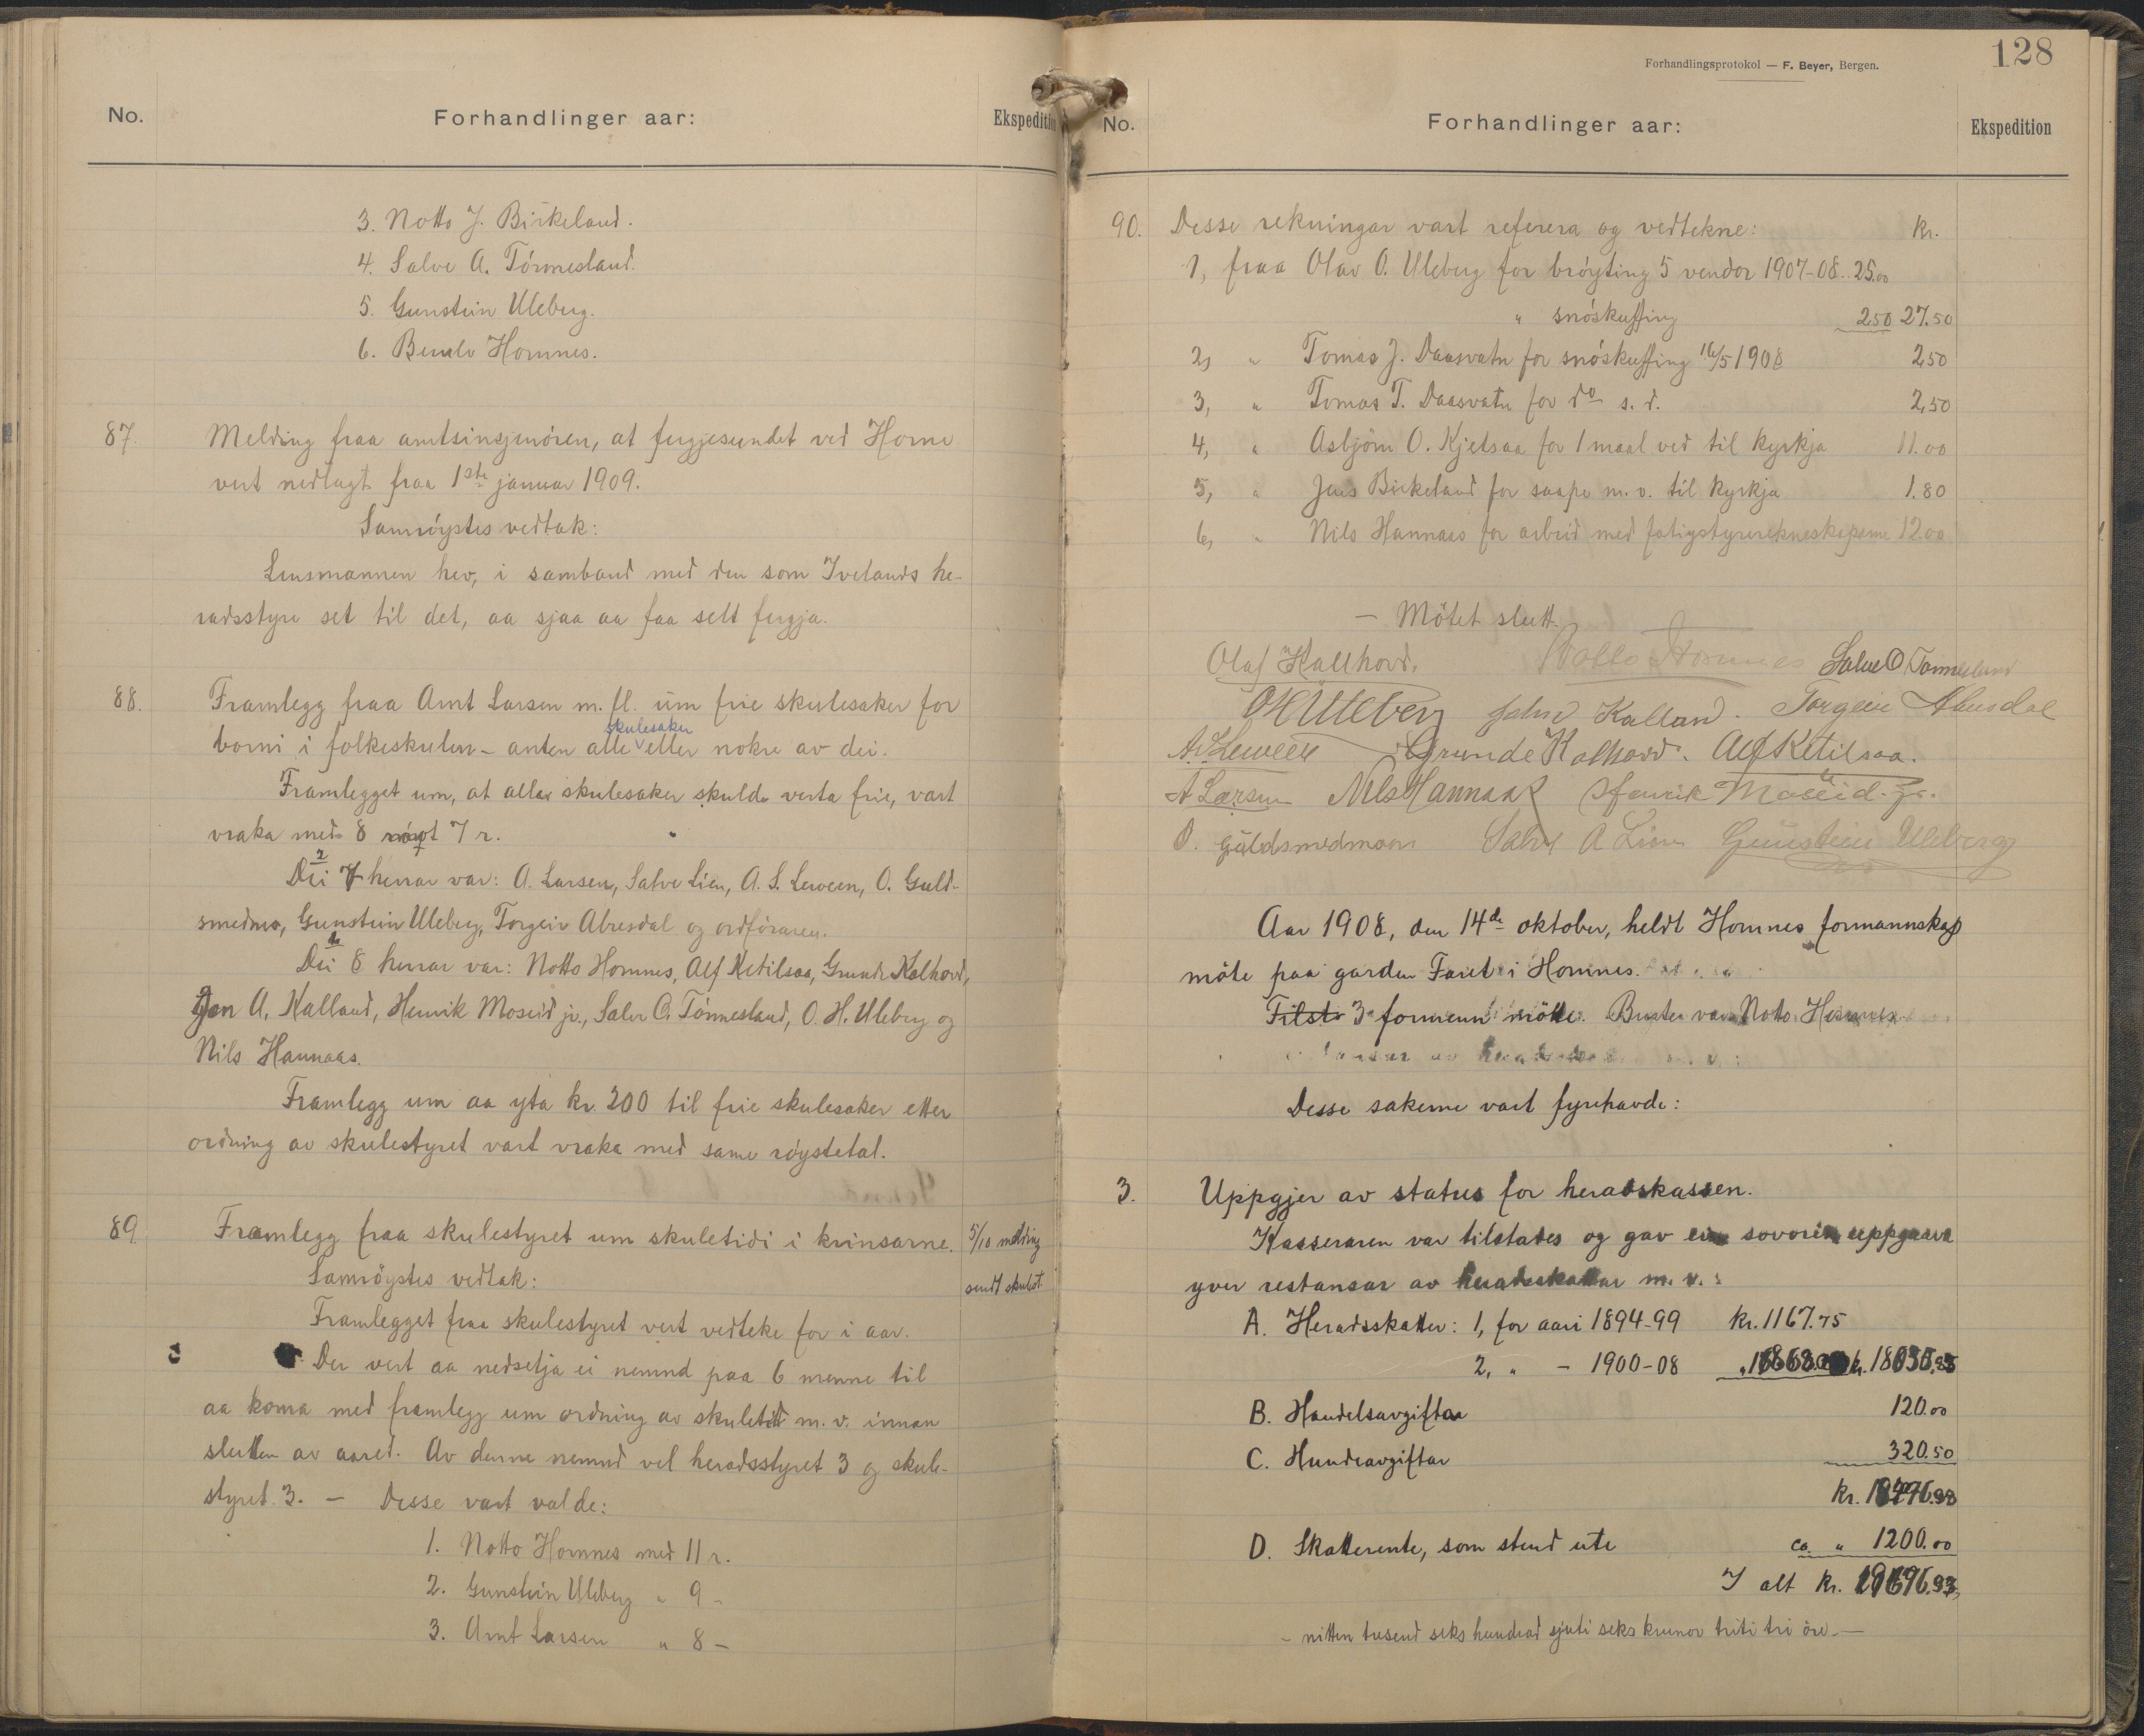 No.
Forhandlinger aar:
Ekspedition
3. Notto J. Birkeland.
4. Salve A. Tónnesland.
5. Gunstein Uleberg.
6. Berulv Hornnes.
87. Melding fraa amtsinsjenóren, at fergjesundet ved Horne
vert nedlagt fraa 1ste januar 1909.
Samróystes vedtak:
Lensmannen hev, i samband med den som Ivelands he-
radsstyre set til det, aa sjaa aa faa selt fergja.
88. Framlegg fraa Arnt Larsen m. fl. um frie skulesaker for
skulesaker
borni i folkeskulen - anten alle eller nokre av dei.
Framlegget um, at alle skulesaker skulde verta frie, vart
vraka med 8 mot 7 r.
Dei 7 herrar var: A. Larsen, Salve Lien, A. S. Leween, O. Guld-
smedmo, Gunstein Uleberg, Torgeir Abusdal og ordfóraren.
Dei 8 herrar var: Notto Hornnes, Alf Ketilsaa, Grunde Kalhovd,
Jon A. Kalland, Henrik Moseid jr., Salve O. Tónnesland, O. H. Uleberg og
Nils Hannaas.
Framlegg um aa yta kr. 200 til frie skulesaker etter
ordning av skulestyret vart vraka med same róystetal.
89. Framlegg fraa skulestyret um skuletidi i krinsarne. 5/10 melding
Samróystes vedtak: sendt skulest.
Framlegget fraa skulestyret vert vedteke for i aar.
Der vert aa nedsetja ei nemnd paa 6 menne til
aa koma med framlegg um ordning av skuletid m. v. innan
slutten av aaret. Av denne nemnd vel heradsstyret 3 og skule-
styret 3. — Desse vart valde:
1. Notto Hornnes med 11 r.
2. Gunstein Uleberg " 9 -
3. Arnt Larsen " 8 —
Forhandlingsprotokol — F. Beyer, Bergen.
128
No.
Forhandlinger aar:
Ekspedition
90. Desse rekningar vart referera og vedtekne: kr.
1, fraa Olav O. Uleberg for bróyting 5 vendor 1907-08. 25.00
" snóskuffing 2.50 27.50
2, " Tomas J. Daasvatn for snóskuffing 16/5 1908 2,50
3, " Tomas T. Daasvatn for do s. d. 2,50
4, " Asbjörn O. Kjetsaa for 1 maal ved til kyrkja 11.00
5, " Jens Birkeland for saape m. v. til kyrkja 1.80
6, " Nils Hannaas for arbeid med fatigstyrerekneskaperne 12.00
— Mötet slutt.
Olaf Kallhovd. Notto Hornnes Salve O Tónnesland
O H Uleberg John Kalland. Torgeir Abusdal
A. S. Leween Grunde Kalhovd. Alf Ketilsaa.
A Larsen Nils Hannaas Henrik Moseid. jr.
O. Guldsmedmoen Salve A Lien Gunstein Uleberg
Aar 1908, den 14de oktober, heldt Hornnes formannskap
möte paa garden Faret i Hornnes.
Tilst. 3 formenn mötte. Burte var Notto Hornnes
Desse sakerne vart fyrehavde:
3. Uppgjer av status for heradskassen.
Kasseraren var tilstades og gav ein sovorin uppgaava
yver restansar av heradsskattar m. v.:
A. Heradsskatter: 1, for aari 1894-99 kr. 1167.75
2, " - 1900-08
B. Handelsavgiftar 120.00
C. Hundeavgiftar 320.50
kr.
D. Skatterente, som stend ute ca. " 1200.00
I alt kr. 19676.93,
- nitten tusend seks hundrad sjuti seks krunor triti tri öre. —